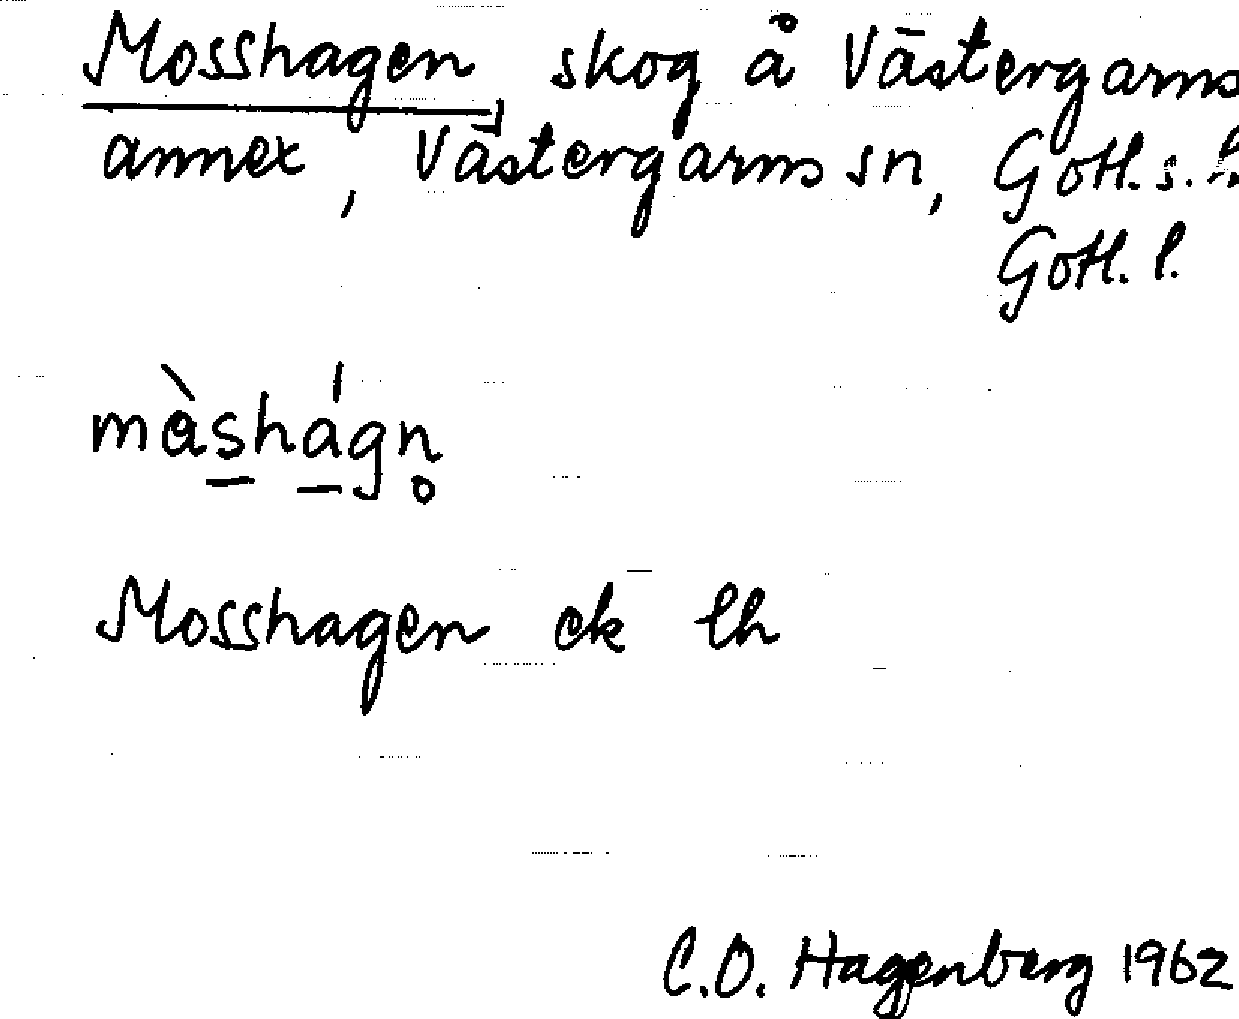 Mosshagen, skog å Västergarns
annex, Västergarns sn, Gotl. s. h.
Gotl. l.
màs̲há̲gn̥
Mosshagen ek lh
C.O. Hagenberg 1962